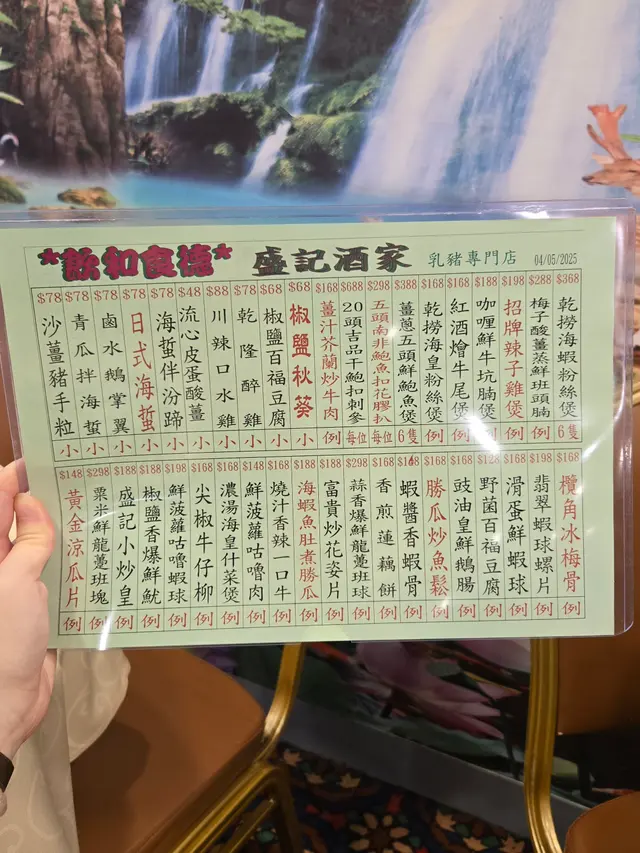 *飲和食德* 盛記酒家 乳豬專門店 04/05/2025
$368 乾撈海蝦粉絲煲 6隻
$288 梅子酸薑蒸鮮班頭腩 例
$198 招牌辣子雞煲 例
$188 咖喱鮮牛坑腩煲 例
$168 紅酒燴牛尾煲 例
$168 乾撈海皇粉絲煲 例
$388 薑蔥五頭鮮鮑魚煲 6隻
$298 五頭南非鮑魚扣花膠扒 每位
$688 20頭吉品干鮑扣刺參 每位
$168 薑汁芥蘭炒牛肉 例
$68 椒鹽秋葵 小
$68 椒鹽百福豆腐 小
$78 乾隆醉雞 小
$88 川辣口水雞 小
$48 流心皮蛋酸薑 小
$78 海蜇伴汾蹄 小
$78 日式海蜇 小
$78 鹵水鵝掌翼 小
$78 青瓜拌海蜇 小
$78 沙薑豬手粒 小
$168 欖角冰梅骨 例
$198 翡翠蝦球螺片 例
$168 滑蛋鮮蝦球 例
$128 野菌百福豆腐 例
$168 豉油皇鮮鵝腸 例
$168 勝瓜炒魚鬆 例
$168 蝦醬香蝦骨 例
$168 香煎蓮藕餅 例
$298 蒜香爆鮮龍躉班球 例
$188 富貴炒花姿片 例
$188 海蝦魚肚煮勝瓜 例
$168 燒汁香辣一口牛 例
$168 鮮菠蘿咕嚕肉 例
$168 濃湯海皇什菜煲 例
$168 尖椒牛仔柳 例
$198 鮮菠蘿咕嚕蝦球 例
$188 椒鹽香爆鮮魷 例
$188 盛記小炒皇 例
$298 粟米鮮龍躉班塊 例
$148 黃金涼瓜片 例